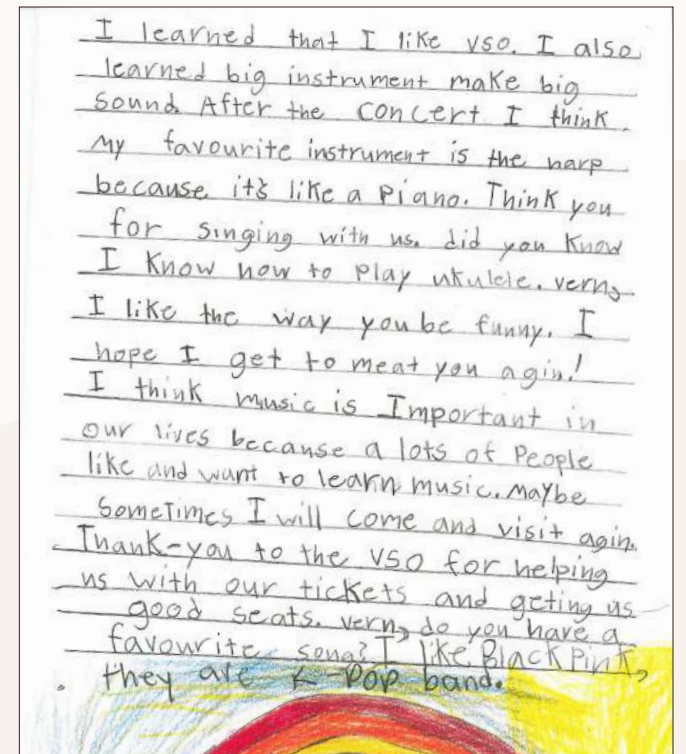 I learned that I like VSO. I also
learned big instrument make big
sound. After the concert I think
my favourite instrument is the harp
because it's like a piano. Think you
for singing with us. did you know
I know how to play ukulele. vern,
I like the way you be funny. I
hope I get to meat you agin!
I think music is Important in
our lives because a lots of People
like and want to learn music. Maybe
Sometimes I will come and visit agin.
Thank-you to the VSO for helping
us with our tickets and geting us
good seats. vern, do you have a
favourite song? I like BlackPink,
they are K-Pop band.